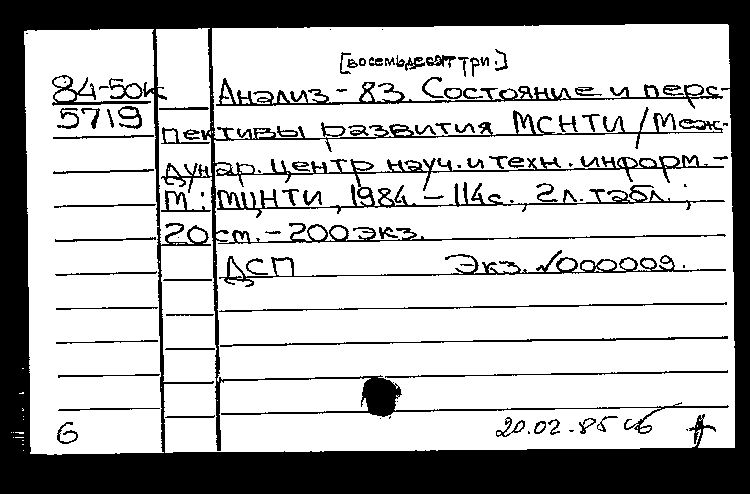 [восемьдесят три.]
84-50к Анализ-83. Состояние и перс-
5719 пективы развития МСНТИ / Меж-
дунар. центр науч. и техн. информ.-
М.: МЦНТИ, 1984. - 114с., 2л. табл.;
20 см. - 200 экз.
ДСП Экз. №000009.
6 20.02.85